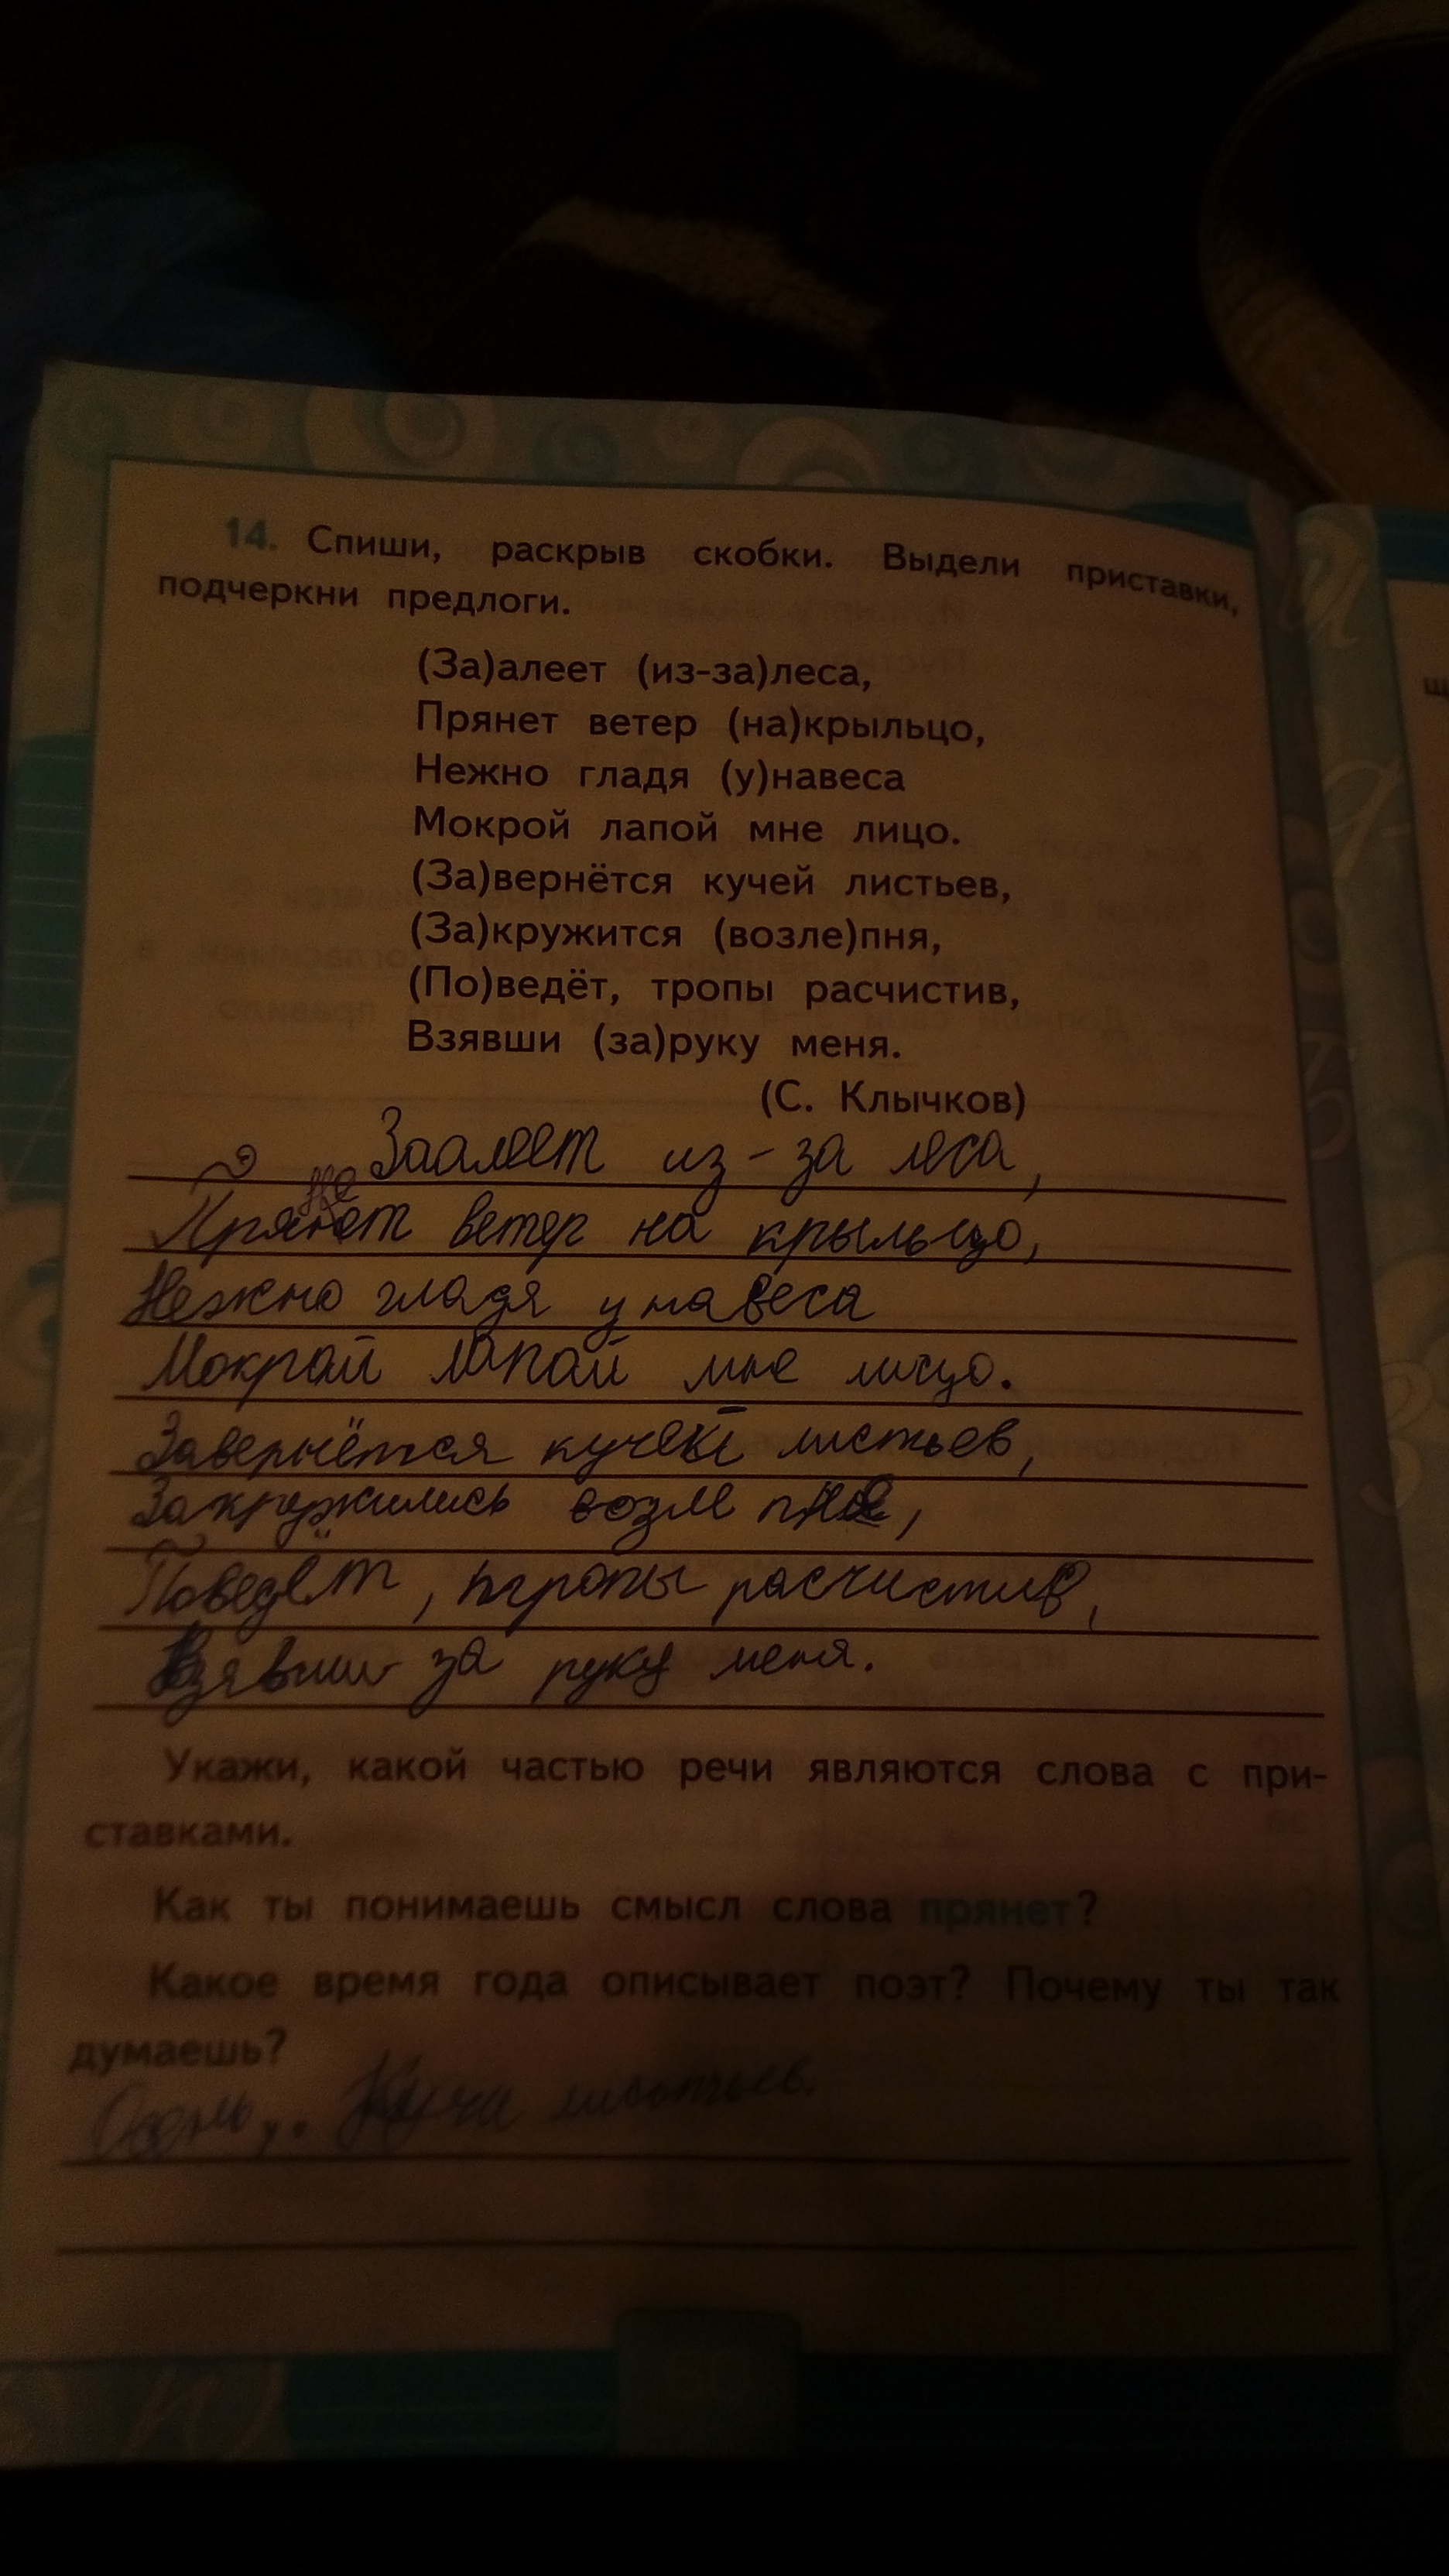 14. Спиши, раскрыв скобки. Выдели приставки,
подчеркни предлоги.
(За)алеет (из-за)леса,
Прянет ветер (на)крыльцо,
Нежно гладя (у)навеса
Мокрой лапой мне лицо.
(За)вернётся кучей листьев,
(За)кружится (возле)пня,
(По)ведёт, тропы расчистив,
Взявши (за)руку меня.
(С. Клычков)
Заалеет из-за леса,
Прянет ветер на крыльцо,
Нежно гладя у навеса
Мокрай лапай мне лицо.
Завернётся кучей листьев,
Закружились возле пня,
Поведёт, тропы расчистив,
Взявши за руку меня.
Укажи, какой частью речи являются слова с при-
ставками.
Как ты понимаешь смысл слова прянет?
Какое время года описывает поэт? Почему ты так
думаешь?
Осень,. Куча листьев.
60